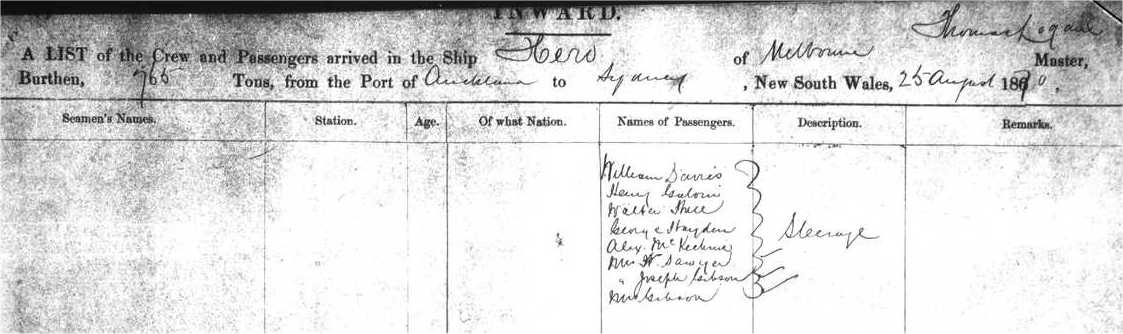 INWARD.
A LIST of the Crew and Passengers arrived in the Ship Hero of Melbourne Thomas Logan Master,
Burthen, 765 Tons, from the Port of Auckland to Sydney, New South Wales, 25 August 1870.
Seamen's Names. Station. Age. Of what Nation. Names of Passengers. Description. Remarks.
William Davies
Henry
Walter
George Hayden
Alex. McKechnie
Mrs W Sawyer
" Joseph Gibson
Mrs Gibson
Steerage